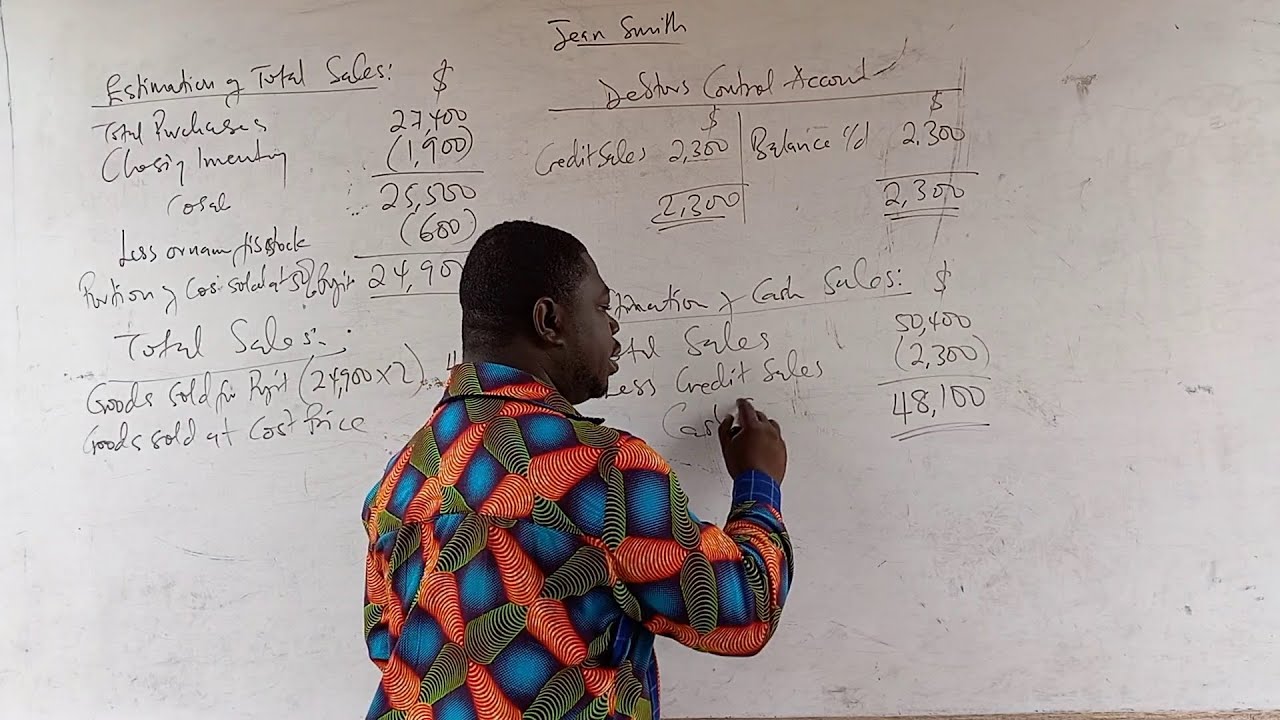 Jean Smith
Estimation of Total Sales: $
Total Purchases 27,400
Closing Inventory (1,900)
25,500
Less ornam stock (600)
Portion of Cost sold at 50% Profit 24,90
Total Sales:
Goods sold for Profit (24,900 x 2)
Goods sold at Cost Price
Debtors Control Account
$ $
Credit Sales 2,300 Balance c/d 2,300
2,300 2,300
timation of Cash Sales: $
tal Sales 50,400
Less Credit Sales (2,300)
Cas 48,100